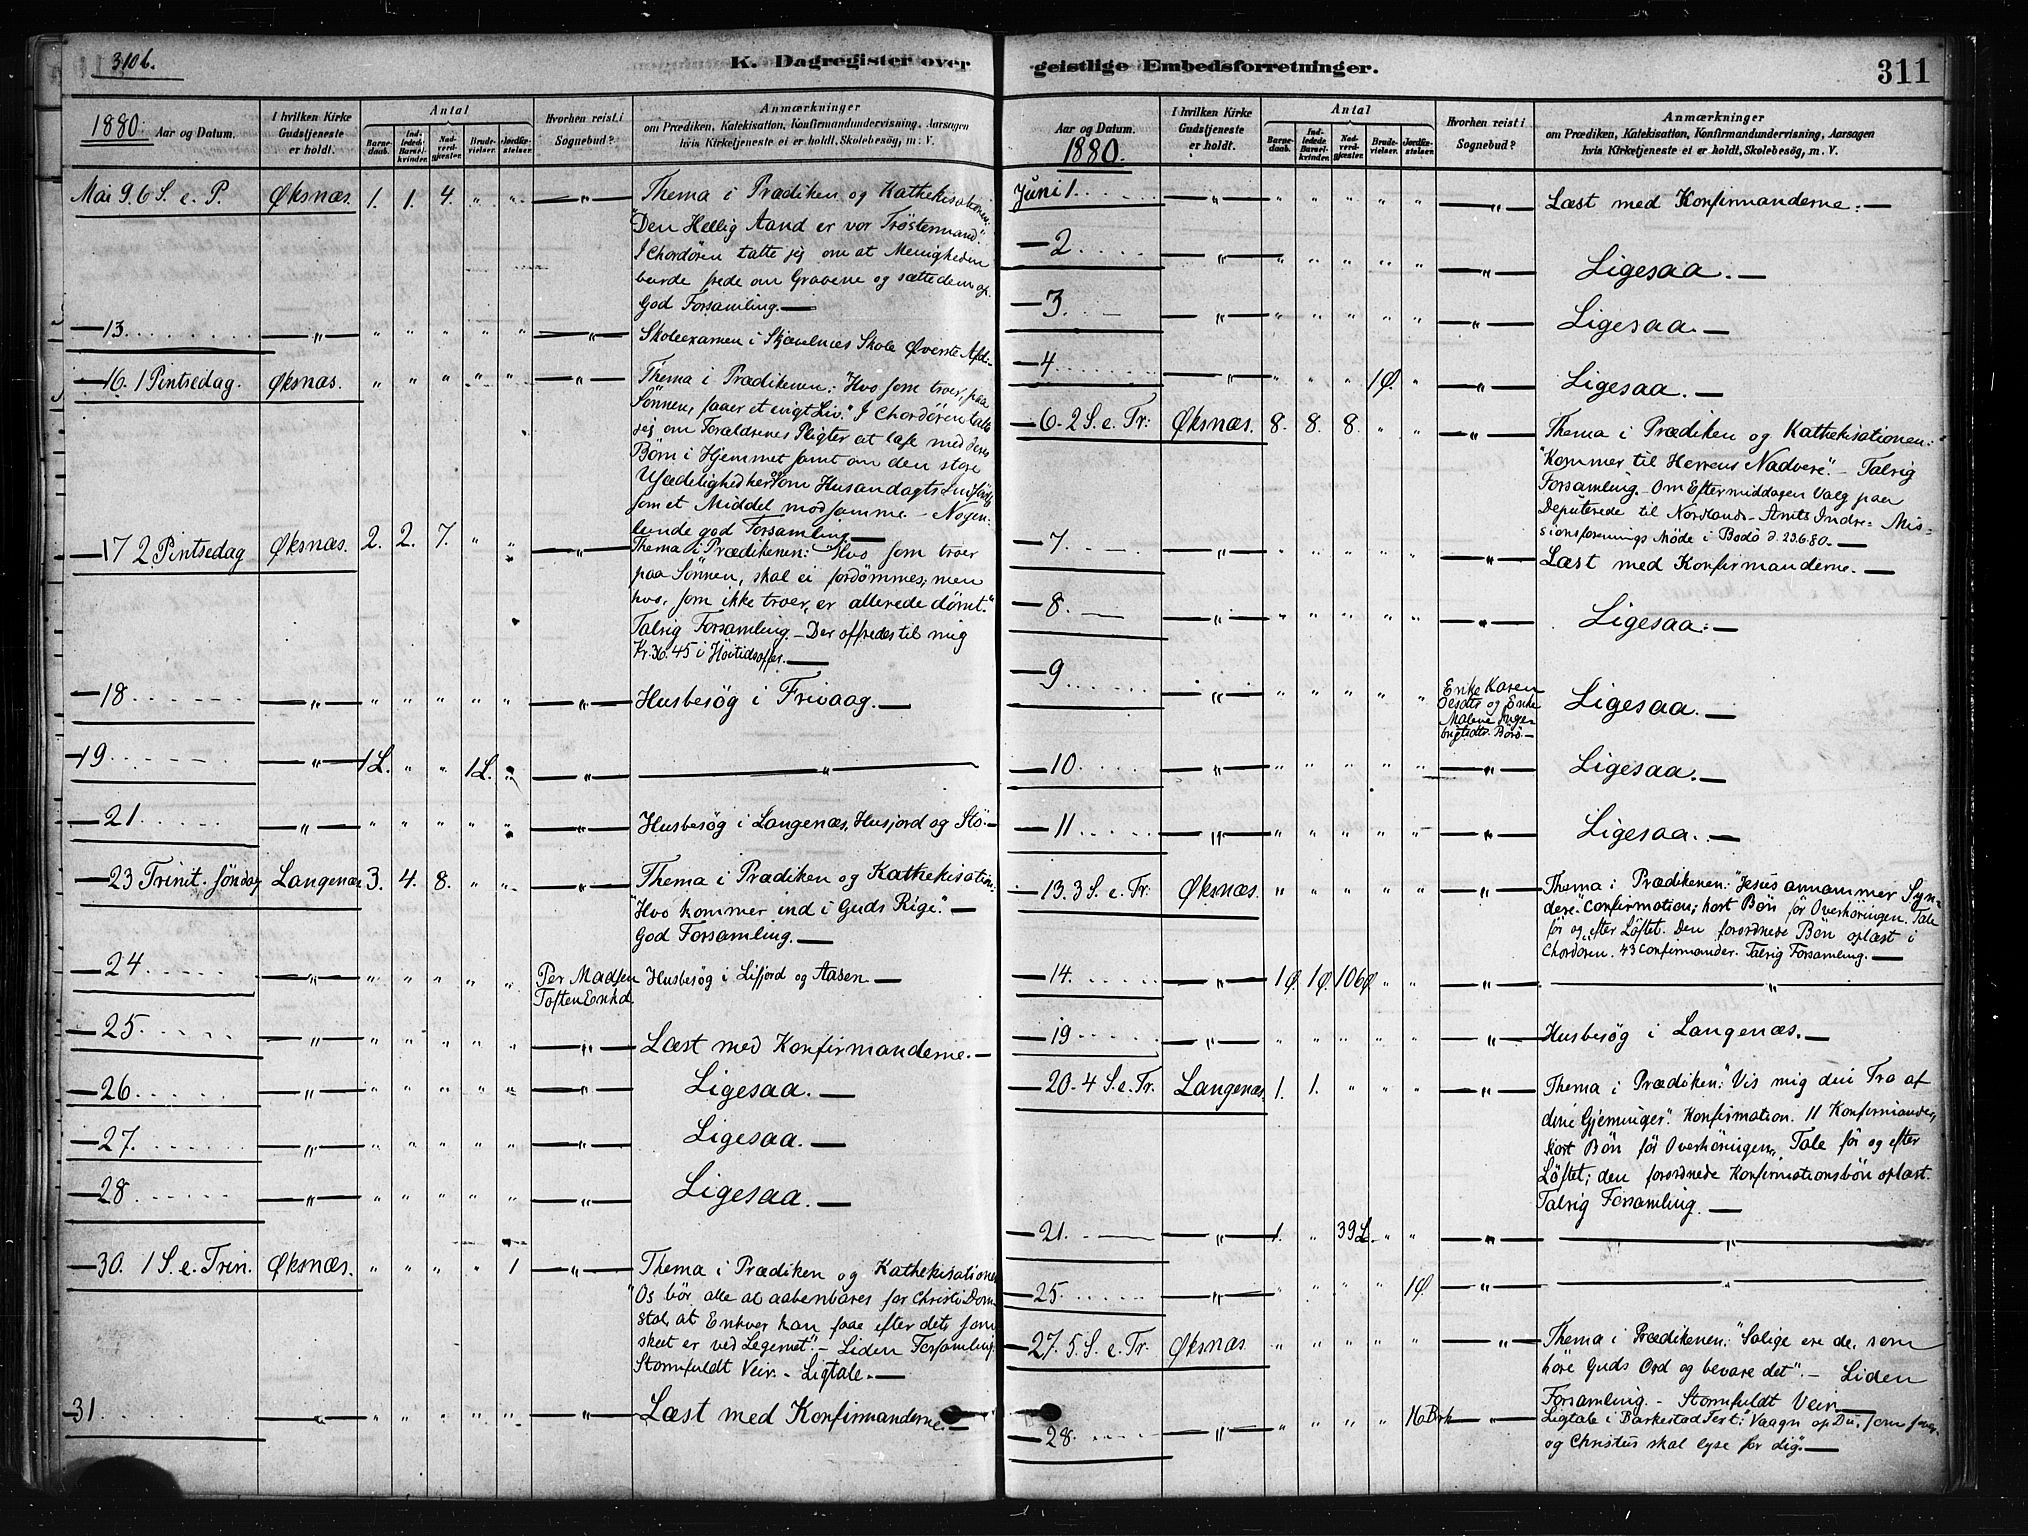 310b.
K. Dagregister over
1880. Aar og Datum.
I hvilken Kirke Gudstjeneste er holdt.
Antal
Barnedaab. Indledede Barselkvinder. Nadverdgjester. Brudevielser. Jordfæstelser.
Hvorhen reist i Sognebud?
Anmærkninger
om Prædiken, Katekisation, Konfirmandundervisning, Aarsagen
hvis Kirketjeneste ei er holdt, Skolebesøg, m. V.
Mai 9. 6 S. e. P. Øksnæs. 1. 1. 4. " " — " — Thema i Prædiken og Kathekisationen:
"Den Hellig Aand er vor Trøstermand".
I Chordören talte jeg om at Menigheden
burde frede om Gravene og sætte dem op.
God Forsamling. —
— 13. — " — " " " " " — " — Skoleexamen i Skjœlnes Skole Øverste Afd.
— 16. 1 Pintsedag. Øksnæs. " " " " " — " — Thema i Prædikenen: "Hvo som troer, paa
Sönnen, faaer et evigt Liv." I Chordören talte
jeg om Forældrenes Pligter at læse med deres
Börn i Hjemmet samt om den store
Usædelighed her, som Husandagts
som et Middel mod samme. — Nogen-
lunde god Forsamling. —
— 17 2. Pintsedag Øksnæs. 2. 2. 7. " " — " — Thema i Prædikenen: "Hvo som troer
paa Sönnen, skal ei fordömmes; men
hvo, som ikke troer, er allerede dömt."
Talrig Forsamling. — Der offredes til mig
Kr. 36.45 i Höitidsoffer. —
— 18 — " — " " " " " — " — Husbesög i Frivaag. —
— 19 — " — 1 L. " " 1 L. " — " — — " —
— 21 — " — " " " " " — " — Husbesög i Langenæs, Husjord og Stö. —
— 23 Trinit. söndag Langenæs 3. 4. 8. " " — " — Thema i Prædiken og Kathekisation:
"Hvo kommer ind i Guds Rige." —
God Forsamling. —
— 24 — " — " " " " " Per Madsen Husbesög i Lifjord og Aasen. —
Toften
— 25. — " — " " " " " — " — Læst med Konfirmanderne. —
— 26 — " — " " " " " — " — Ligesaa. —
— 27. — " — " " " " " — " — Ligesaa. —
— 28 — " — " " " " " — " — Ligesaa. —
— 30. 1 S. e. Trin. Øksnæs. " " " " 1 — " — Thema i Prædiken og Kathekisationen
"Os bör alle at aabenbares for Christi Dom-
stol, at Enhver kan faae efter det, som
skeet er ved Legemet". — Liden Forsamling.
Stormfuldt Veir. — Ligtale. —
31. — " — " " " " " — " — Læst med Konfirmanderne. —
geistlige Embedsforretninger.
311
Aar og Datum. 1880.
I hvilken Kirke Gudstjeneste er holdt.
Antal
Barnedaab. Indledede Barselkvinder. Nadverdgjester. Brudevielser. Jordfæstelser.
Hvorhen reist i Sognebud?
Anmærkninger
om Prædiken, Katekisation, Konfirmandundervisning, Aarsagen
hvis Kirketjeneste ei er holdt, Skolebesøg, m. V.
Juni 1. — " — " " " " " — " — Læst med Konfirmanderne. —
— 2 — " — " " " " " — " — Ligesaa. —
— 3. — " — " " " " " — " — Ligesaa. —
— 4 — " — " " " 1 Ø. " — " — Ligesaa. —
— 6. 2 S. e. Tr: Øksnæs. 8. 8. 8. " " — " — Thema i Prædiken og Kathekisationen:
"Kommer til Herrens Nadvere". — Talrig
Forsamling. Om Eftermiddagen Valg paa
Deputerede til Nordlands Amts Indre-Mis-
sionsforenings Möde i Bodö d. 23.6.80. —
— 7. — " — " " " " " — " — Læst med Konfirmanderne. —
— 8. — " — " " " " " — " — Ligesaa. —
— 9 — " — " " " " " Enke Karen Ligesaa. —
og Enke
Malene
Börö. —
— 10 — " — " " " " " — " — Ligesaa. —
— 11 — " — " " " " " — " — Ligesaa. —
— 13. 3 S. e. Tr. Øksnæs. " " " " " — " — Thema i Prædikenen: "Jesus annammer Syn-
dere". Confirmation; kort Bön för Overhöringen. Tale
för og efter Löftet. Den forordnede Bön oplæst i
Chordören. 43 Confirmander. Talrig Forsamling. —
— 14. — " — 1 Ø. 1 Ø. 106 Ø " " — " — — " —
— 19 — " — " " " " " — " — Husbesög i Langenæs. —
— 20. 4 S. e. Tr. Langenæs. 1. 1. " " " — " — Thema i Prædiken: "Vis mig din Tro af
dine Gjerninger". Konfirmation. 11 Konfirmander,
kort Bön för Overhöringen, Tale för og efter
Löftet; den forordnede Konfirmationsbön oplæst.
Talrig Forsamling. —
— 21. — " — 1. " 39 L. " " — " — — " —
— 25. — " — " " " " 1 Ø. — " — — " —
— 27. 5. S. e. Tr. Øksnæs. " " " " " — " — Thema i Prædikenen: "Salige ere de, som
höre Guds Ord og bevare det". — Liden
Forsamling. — Stormfuldt Veir. —
— 28. — " — " " " " — " — Ligtale i Barkestad Text: "Vaagn op Du, som sover
og Christus skal lyse for dig". —